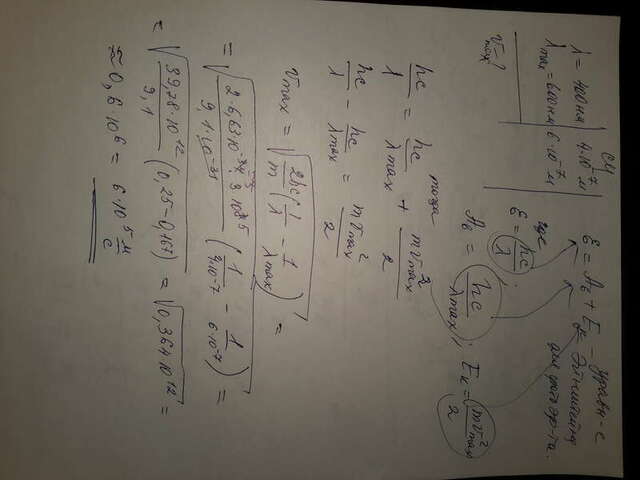 СИ
λ = 400нм | 4·10⁻⁷ м
λmax = 600нм | 6·10⁻⁷ м
vmax - ?
E = Aв + Eк - уравн-е Эйнштейна для фотоэф-та.
где
E = hc/λ; Aв = hc/λmax; Eк = mv²max/2
тогда
hc/λ = hc/λmax + mv²max/2
hc/λ - hc/λmax = mv²max/2
vmax = √(2hc/m (1/λ - 1/λmax)) =
= √(2·6,63·10⁻³⁴·3·10⁸/9,1·10⁻³¹ (1/4·10⁻⁷ - 1/6·10⁻⁷)) =
= √(39,78·10¹²/9,1 (0,25-0,167)) = √(0,364·10¹²) =
≈ 0,6·10⁶ = 6·10⁵ м/с